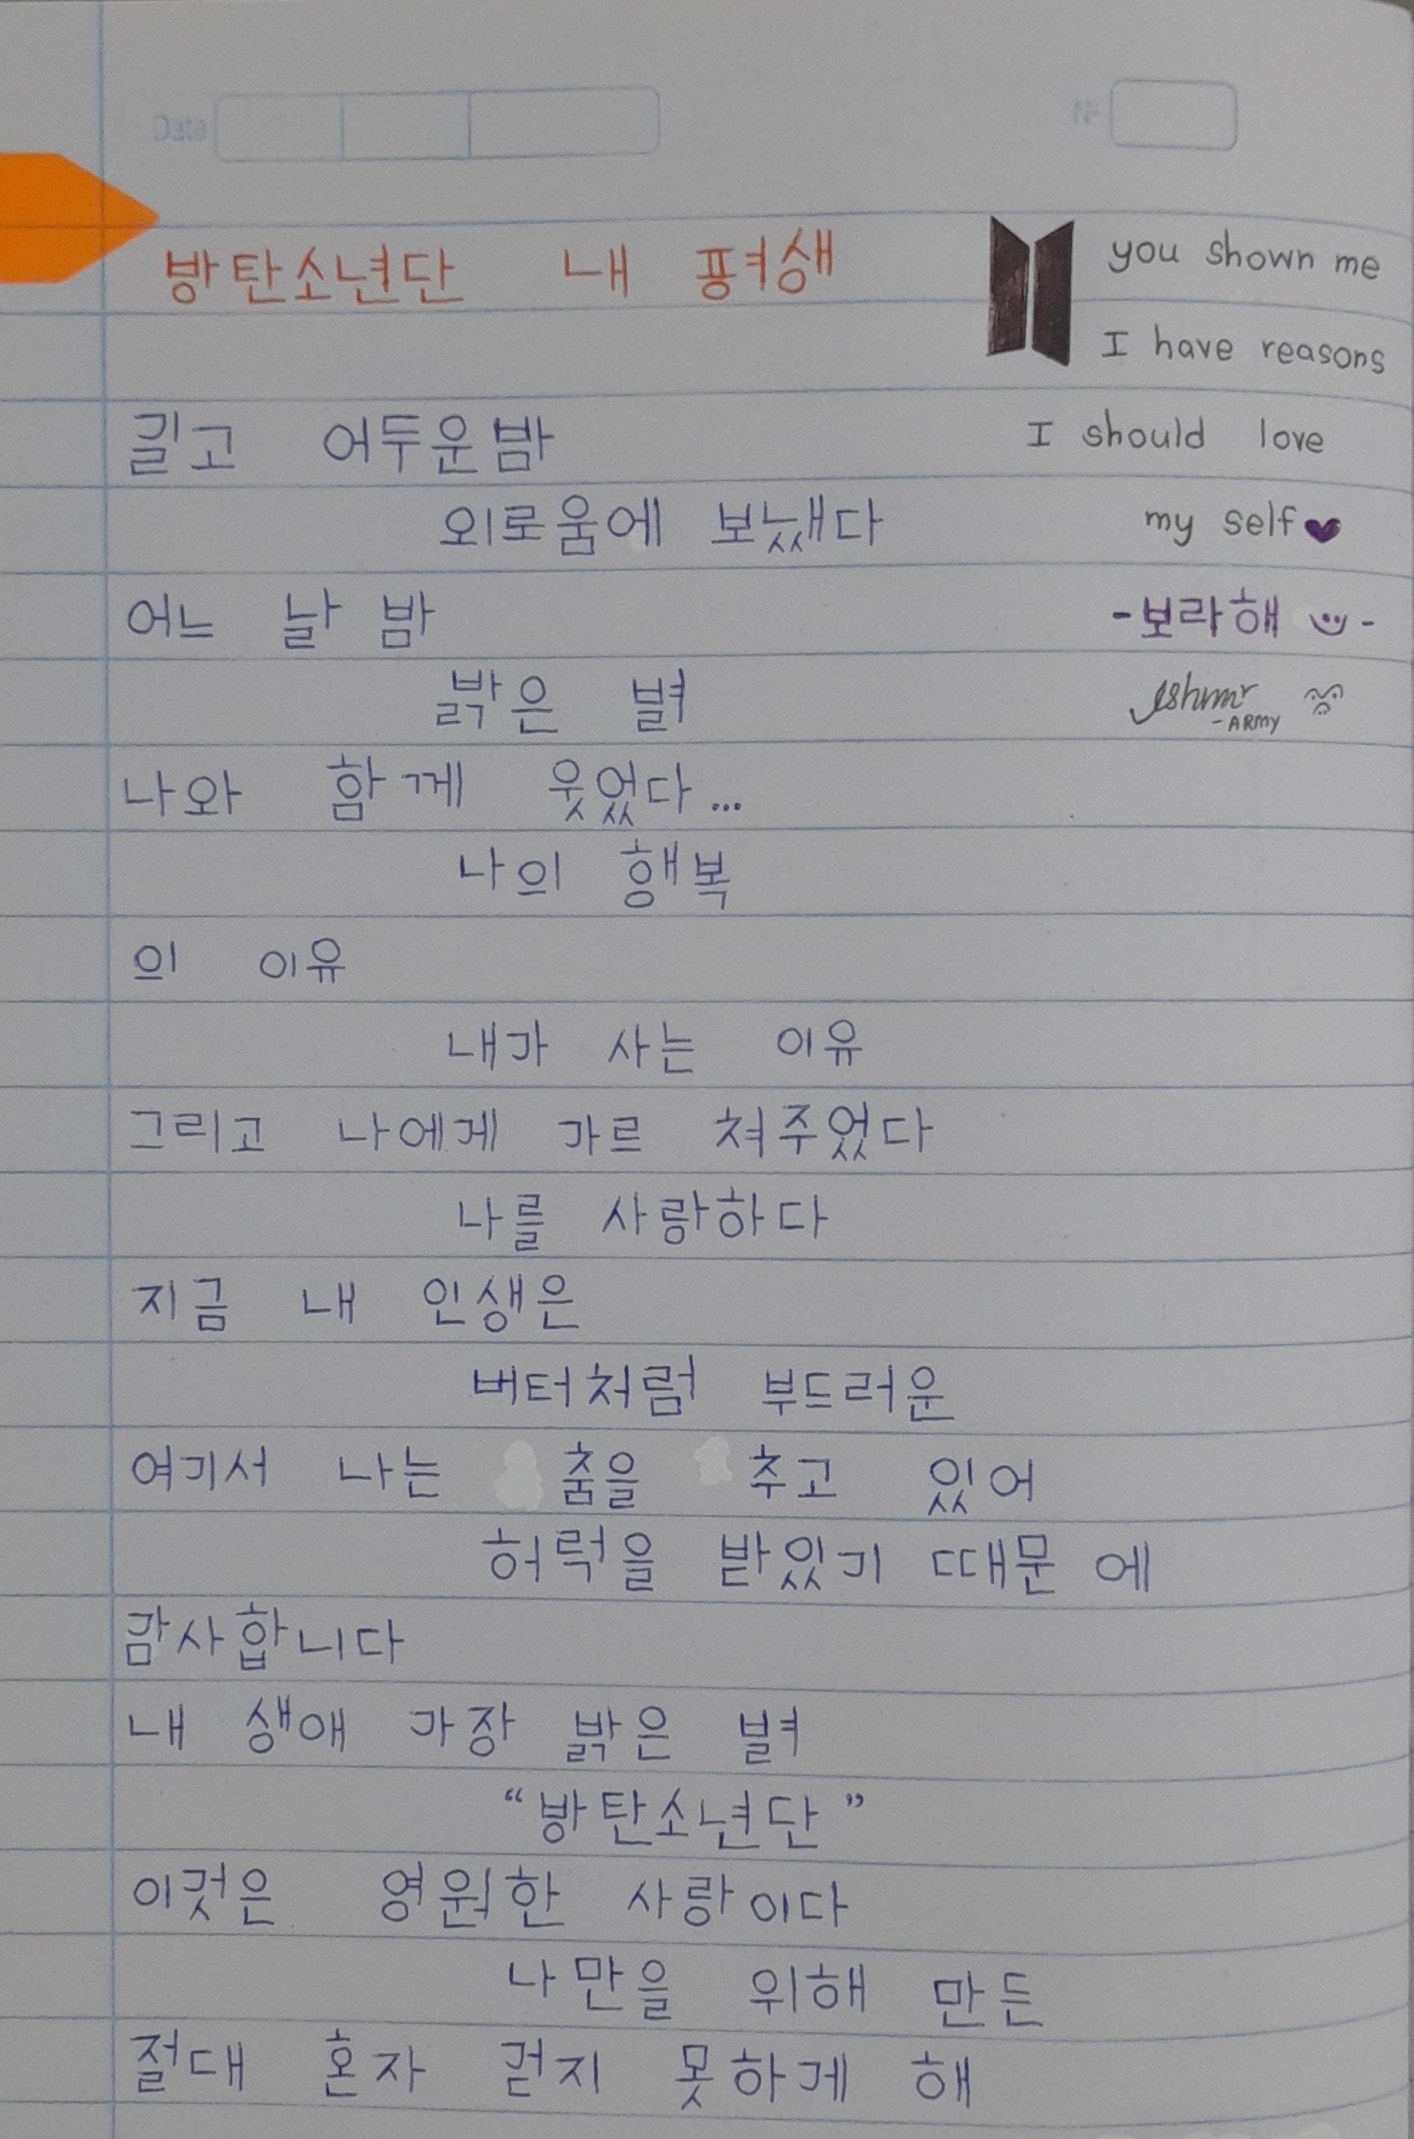 Date
Nº
방탄소년단 내 평생
you shown me
I have reasons
I should love
my self
-보라해 -
-ARMY
길고 어두운밤
외로움에 보냈다
어느 날 밤
밝은 별
나와 함께 웃었다...
나의 행복
의 이유
내가 사는 이유
그리고 나에게 가르 쳐주었다
나를 사랑하다
지금 내 인생은
버터처럼 부드러운
여기서 나는 춤을 추고 있어
허럭을 받있기 때문 에
감사합니다
내 생애 가장 밝은 별
“방탄소년단”
이것은 영원한 사랑이다
나만을 위해 만든
절대 혼자 걷지 못하게 해